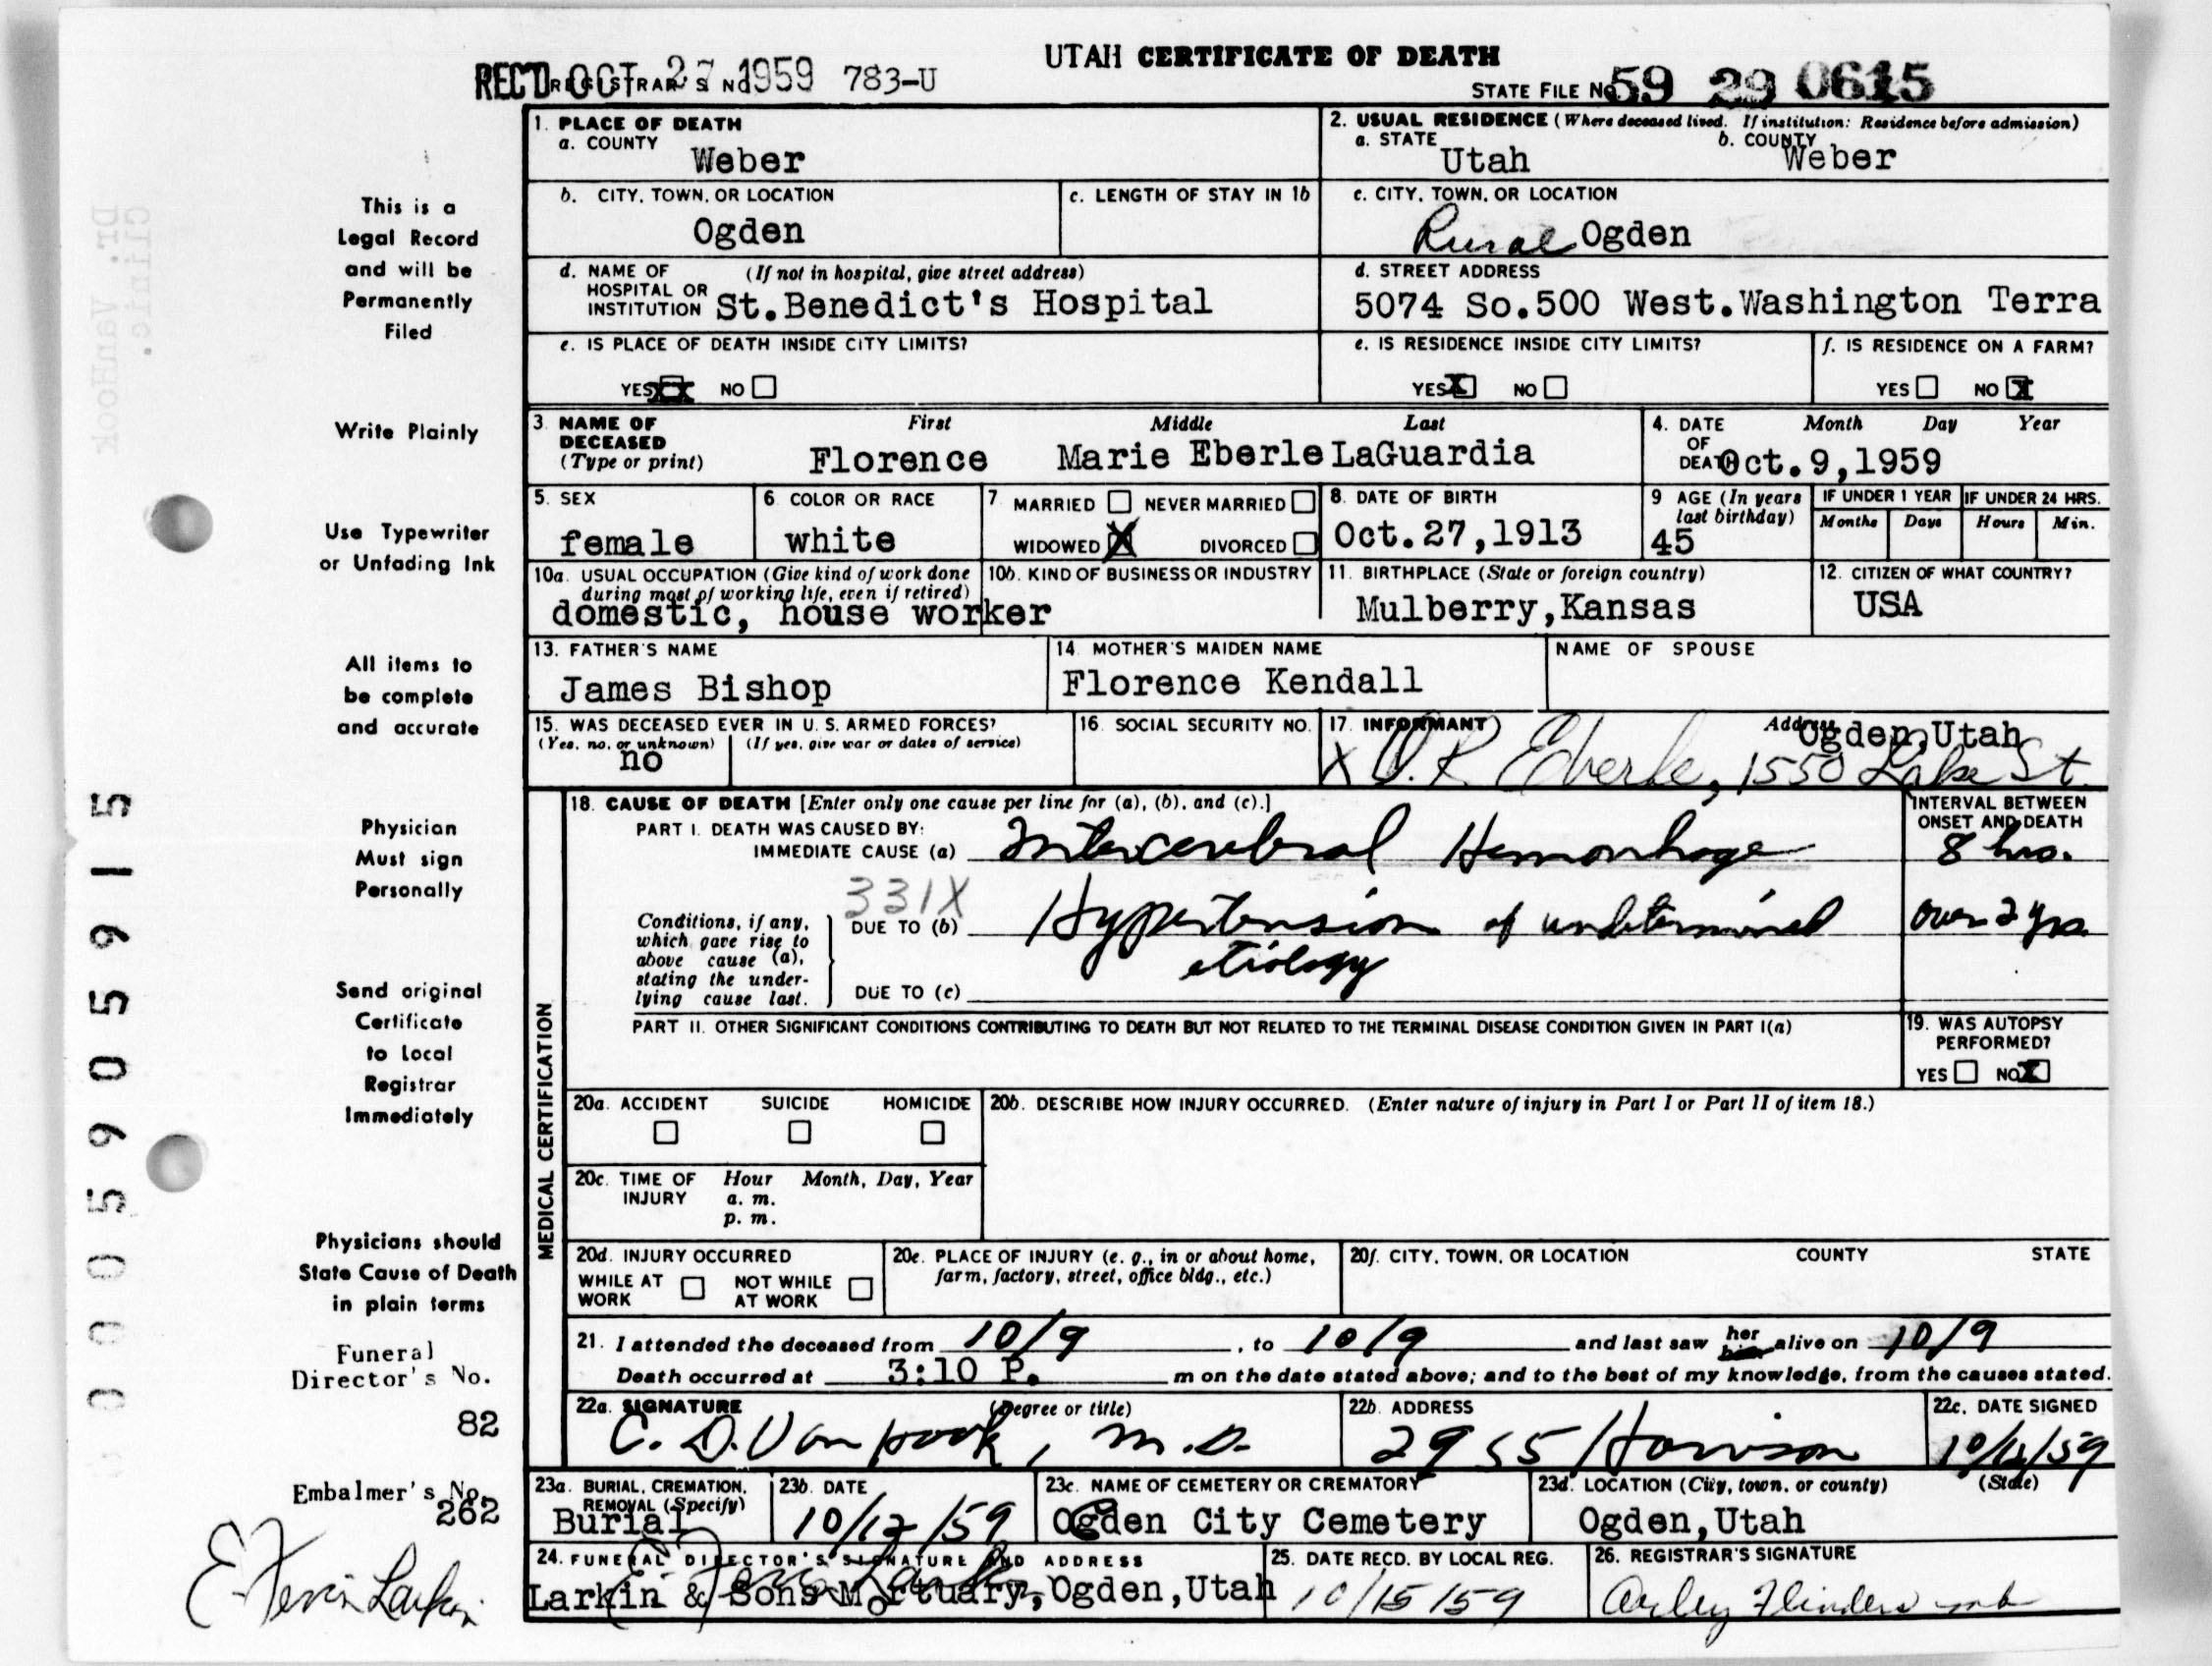 UTAH CERTIFICATE OF DEATH
REC'D OCT 27 1959 REGISTRAR'S No 783-U
STATE FILE No 59 29 0615
1. PLACE OF DEATH
a. COUNTY Weber
2. USUAL RESIDENCE (Where deceased lived. If institution: Residence before admission)
a. STATE Utah b. COUNTY Weber
b. CITY, TOWN, OR LOCATION Ogden
c. LENGTH OF STAY IN 1b
c. CITY, TOWN, OR LOCATION Rural Ogden
d. NAME OF HOSPITAL OR INSTITUTION (If not in hospital, give street address) St.Benedict's Hospital
d. STREET ADDRESS
5074 So.500 West.Washington Terra
e. IS PLACE OF DEATH INSIDE CITY LIMITS?
YES XX NO
e. IS RESIDENCE INSIDE CITY LIMITS?
YES X NO
f. IS RESIDENCE ON A FARM?
YES NO X
3. NAME OF DECEASED (Type or print) First Middle Last
Florence Marie Eberle LaGuardia
4. DATE OF DEATH Month Day Year
Oct.9,1959
5. SEX female
6. COLOR OR RACE white
7. MARRIED NEVER MARRIED
WIDOWED X DIVORCED
8. DATE OF BIRTH Oct.27,1913
9 AGE (In years last birthday) 45
IF UNDER 1 YEAR Months Days
IF UNDER 24 HRS. Hours Min.
10a. USUAL OCCUPATION (Give kind of work done during most of working life, even if retired)
domestic, house worker
10b. KIND OF BUSINESS OR INDUSTRY
11. BIRTHPLACE (State or foreign country)
Mulberry,Kansas
12. CITIZEN OF WHAT COUNTRY?
USA
13. FATHER'S NAME
James Bishop
14. MOTHER'S MAIDEN NAME
Florence Kendall
NAME OF SPOUSE
15. WAS DECEASED EVER IN U.S. ARMED FORCES?
(Yes, no, or unknown) (If yes, give war or dates of service)
no
16. SOCIAL SECURITY NO.
17. INFORMANT Address Ogden,Utah
X O.R Eberle, 1550 Lake St.
MEDICAL CERTIFICATION
18. CAUSE OF DEATH [Enter only one cause per line for (a), (b), and (c).]
PART I. DEATH WAS CAUSED BY:
IMMEDIATE CAUSE (a) Intercerebral Hemorrhage
INTERVAL BETWEEN ONSET AND DEATH
8 hrs.
331X
Conditions, if any, which gave rise to above cause (a), stating the underlying cause last.
DUE TO (b) Hypertension of undetermined etiology
over 2 yrs.
DUE TO (c)
PART II. OTHER SIGNIFICANT CONDITIONS CONTRIBUTING TO DEATH BUT NOT RELATED TO THE TERMINAL DISEASE CONDITION GIVEN IN PART I(a)
19. WAS AUTOPSY PERFORMED?
YES NO X
20a. ACCIDENT SUICIDE HOMICIDE
20b. DESCRIBE HOW INJURY OCCURRED. (Enter nature of injury in Part I or Part II of item 18.)
20c. TIME OF INJURY Hour Month, Day, Year
a. m.
p. m.
20d. INJURY OCCURRED
WHILE AT WORK NOT WHILE AT WORK
20e. PLACE OF INJURY (e. g., in or about home, farm, factory, street, office bldg., etc.)
20f. CITY, TOWN, OR LOCATION COUNTY STATE
21. I attended the deceased from 10/9, to 10/9 and last saw her him alive on 10/9
Death occurred at 3:10 P. m on the date stated above; and to the best of my knowledge, from the causes stated.
22a. SIGNATURE (Degree or title)
C. D. Van Hook, M.D.
22b. ADDRESS
2955 Harrison
22c. DATE SIGNED
23a. BURIAL, CREMATION, REMOVAL (Specify)
Burial
23b. DATE
10/12/59
23c. NAME OF CEMETERY OR CREMATORY
Ogden City Cemetery
23d. LOCATION (City, town, or county) (State)
Ogden,Utah
24. FUNERAL DIRECTOR'S SIGNATURE AND ADDRESS
Larkin & Sons Mortuary, Ogden,Utah
25. DATE RECD. BY LOCAL REG.
10/15/59
26. REGISTRAR'S SIGNATURE
Arley Flinders
This is a
Legal Record
and will be
Permanently
Filed
Write Plainly
Use Typewriter
or Unfading Ink
All items to
be complete
and accurate
Physician
Must sign
Personally
Send original
Certificate
to Local
Registrar
Immediately
Physicians should
State Cause of Death
in plain terms
Funeral
Director's No.
82
Embalmer's No.
262
Larkin
Dr. VanHook
Clinic.